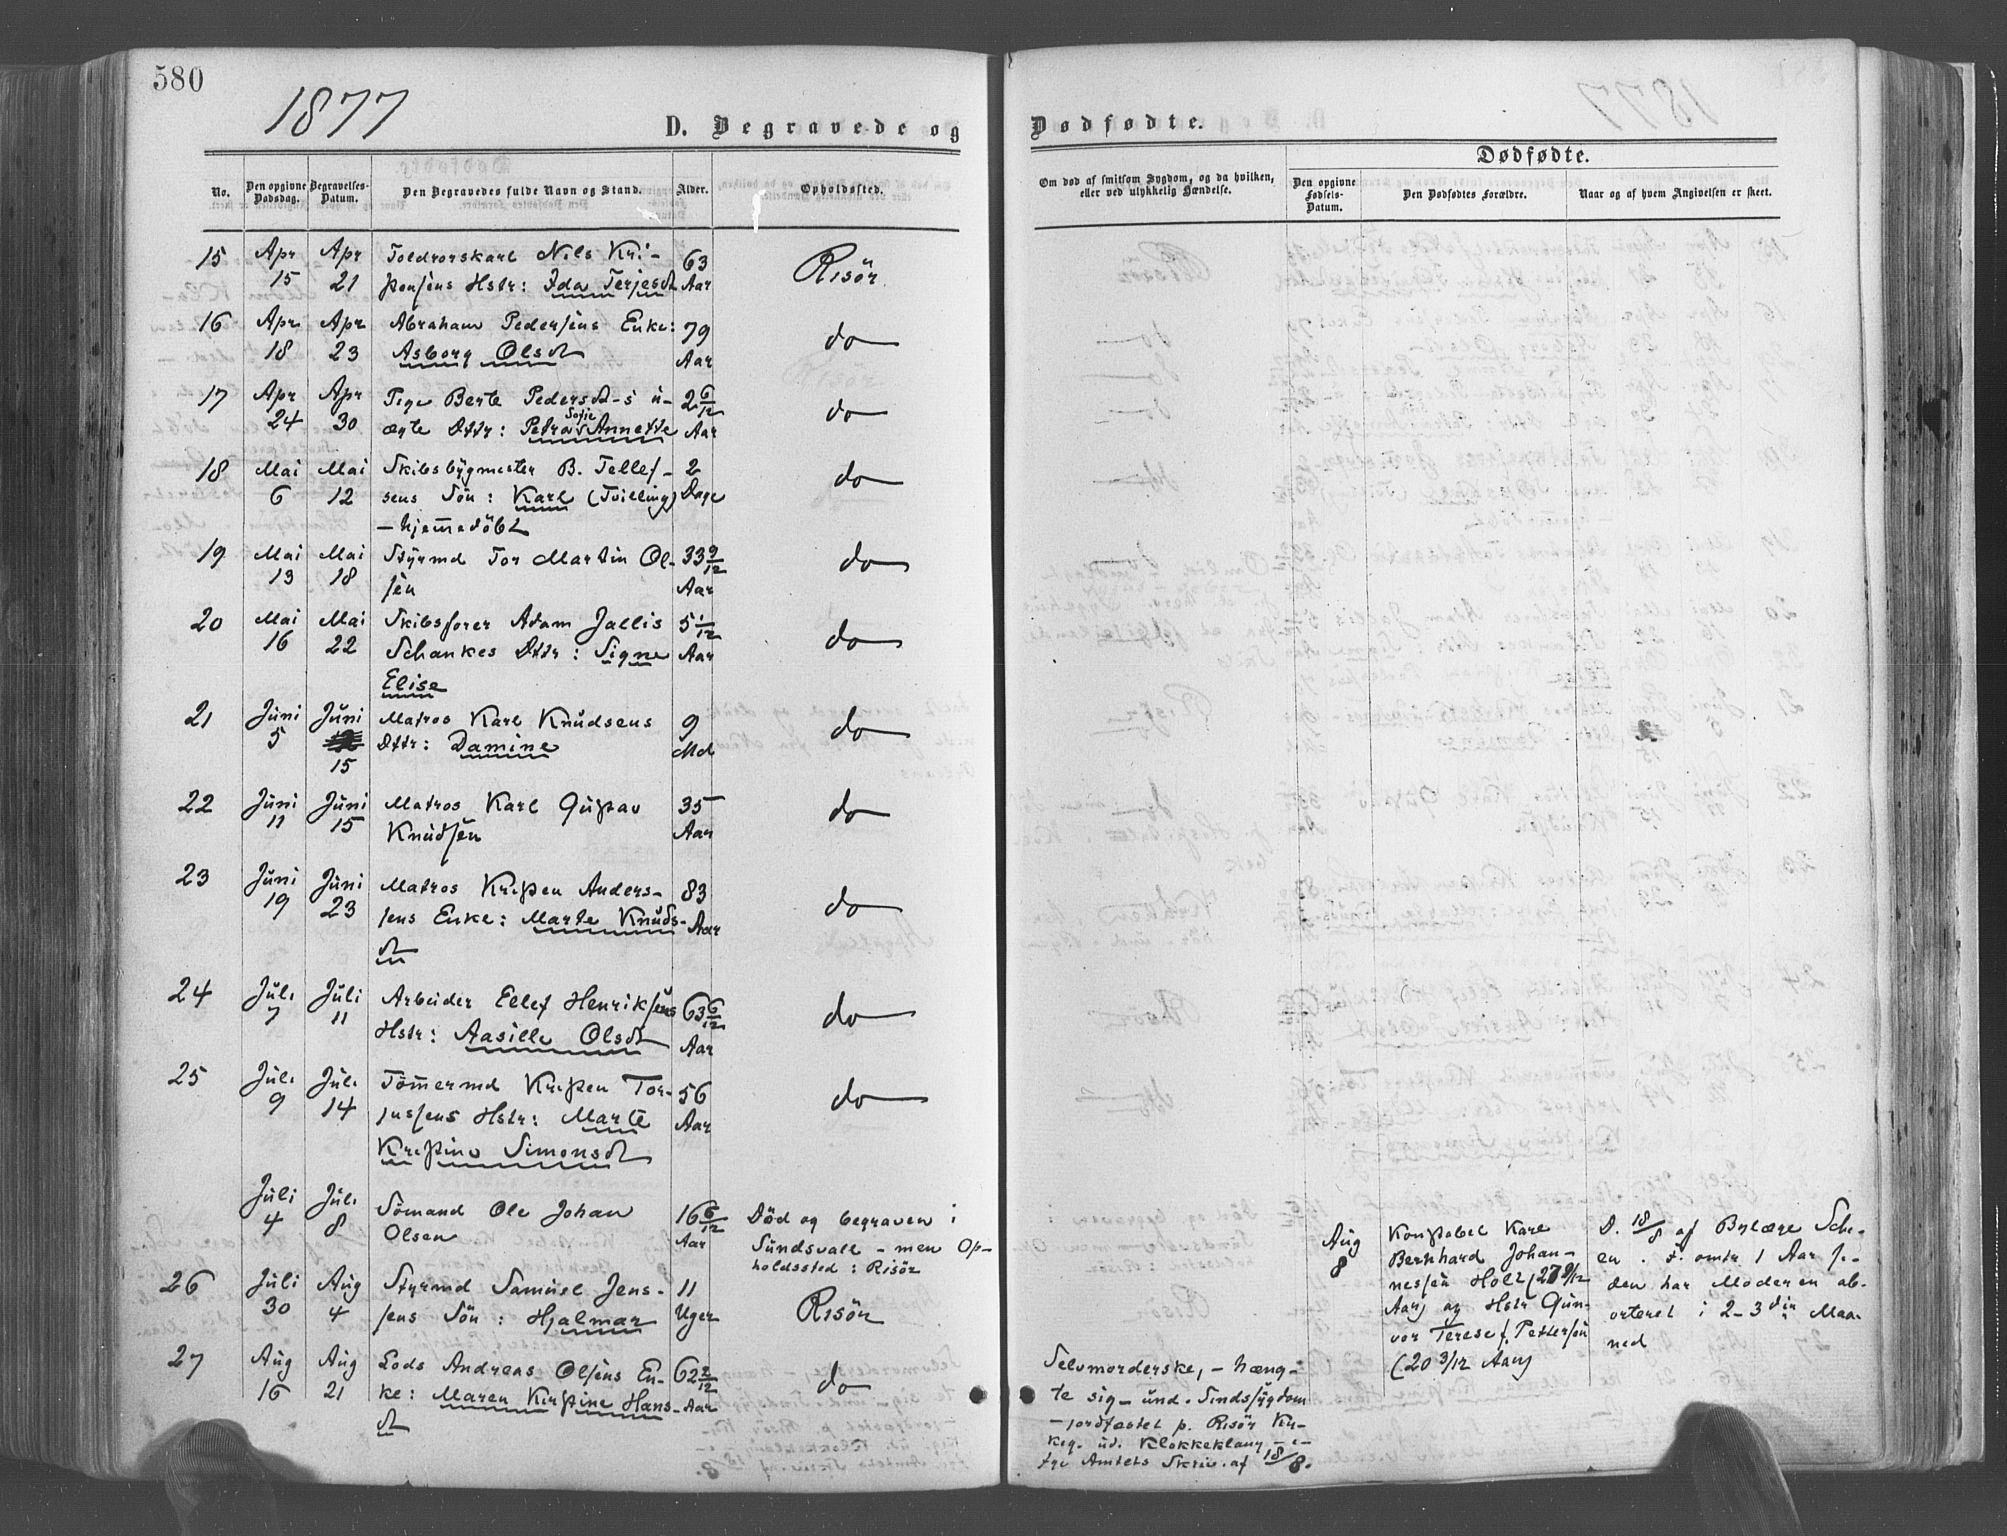 580
1877
D. Begravede og
Dødfødte.
Dødfødte.
No.
Den opgivne Dødsdag.
Begravelses-Datum.
Den Begravedes fulde Navn og Stand.
Alder.
Opholdssted.
Om død af smitsom Sygdom, og da hvilken, eller ved ulykkelig Hændelse.
Den opgivne Fødsels-Datum.
Den Dødfødtes Forældre.
Naar og af hvem Angivelsen er skeet.
15 Apr Apr Toldrorskarl Nils Kri- 63 Risör
15 21 stensens Hstr: Ida Terjesdt Aar
16 Apr Apr Abraham Pedersens Enke: 79 do
18 23 Asborg Olsdt Aar
17 Apr Apr Pige Berte Pedersdt-s ü- 2 6/12 do
24 30 ægte Dttr: Petra Sofie Annette Aar
18 Mai Mai Skibsbygmester B. Tellef- 2 do
6 12 sens Sön: Karl (Tvilling) Dage
- hjemedöbt
19 Mai Mai Styrmd Tor Martin Ol- 33 9/12 do
13 18 sen Aar
20 Mai Mai Skibsförer Adam Jallis 5 1/12 do
16 22 Schankes Dttr: Signe Aar
Elise
21 Jüni Jüni Matros Karl Knüdsens 9 do
5 15 Dttr: Damine Md
22 Jüni Jüni Matros Karl Güstav 35 do
11 15 Knüdsen Aar
23 Jüni Jüni Matros Kristen Anders- 83 do
19 23 sens Enke: Marte Knüds- Aar
dt
24 Juli Juli Arbeider Ellef Henriksens 63 6/12 do
7 11 Hstr: Aasille Olsdt Aar
25 Juli Juli Tömermd Kristen Tor- 56 do
9 14 jussens Hstr: Marte Aar
Kristine Simonsdt
Juli Juli Sömand Ole Johan 16 6/12 Död og begraven i
4 8 Olsen Aar Sündsvall - men Op-
holdssted: Risör
26 Juli Aug Styrmd Samüel Jens- 11 Risör
30 4 sens Sön: Hjalmar Uger
27 Aug Aug Lods Andreas Olsens En- 62 2/12 do
16 21 ke: Maren Kirstine Hans- Aar
dt
Selvmorderske, - hæng-
te sig - und. Sindssygdom
- jordfæstet p. Risör Kir-
keg. ud. Klokkeklang - e-
fter Amtets Skriv. af 18/8.
Aug
8
Konstabel Karl
Bernhard Johan-
nessen Holt (27 9/12
Aar) og Hstr Gün-
vor Terese f. Pettersen
(20 3/12 Aar)
D. 18/8 af Bylæge Sch-
en. F. omtr 1 Aar si-
den har Moderen ab-
orteret i 2-3die Maa-
ned